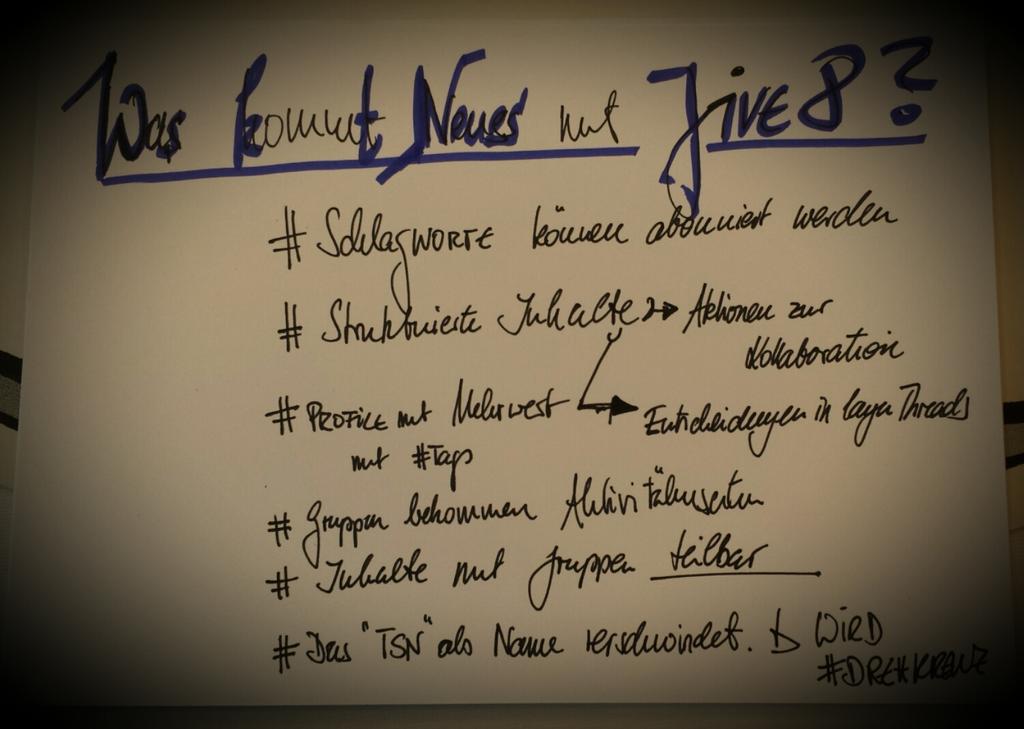 Was kommt Neues mit Jive 8?
# Schlagworte können abonniert werden
# Strukturierte Inhalte → Aktionen zur
Kollaboration
# Profile mit Mehrwert → Entscheidungen in Threads
mit #Tags
# Gruppen bekommen Aktivitätenseiten
# Inhalte mit Gruppen teilbar
# Das "TSN" als Name verschwindet. WIRD
#DREHKREUZ